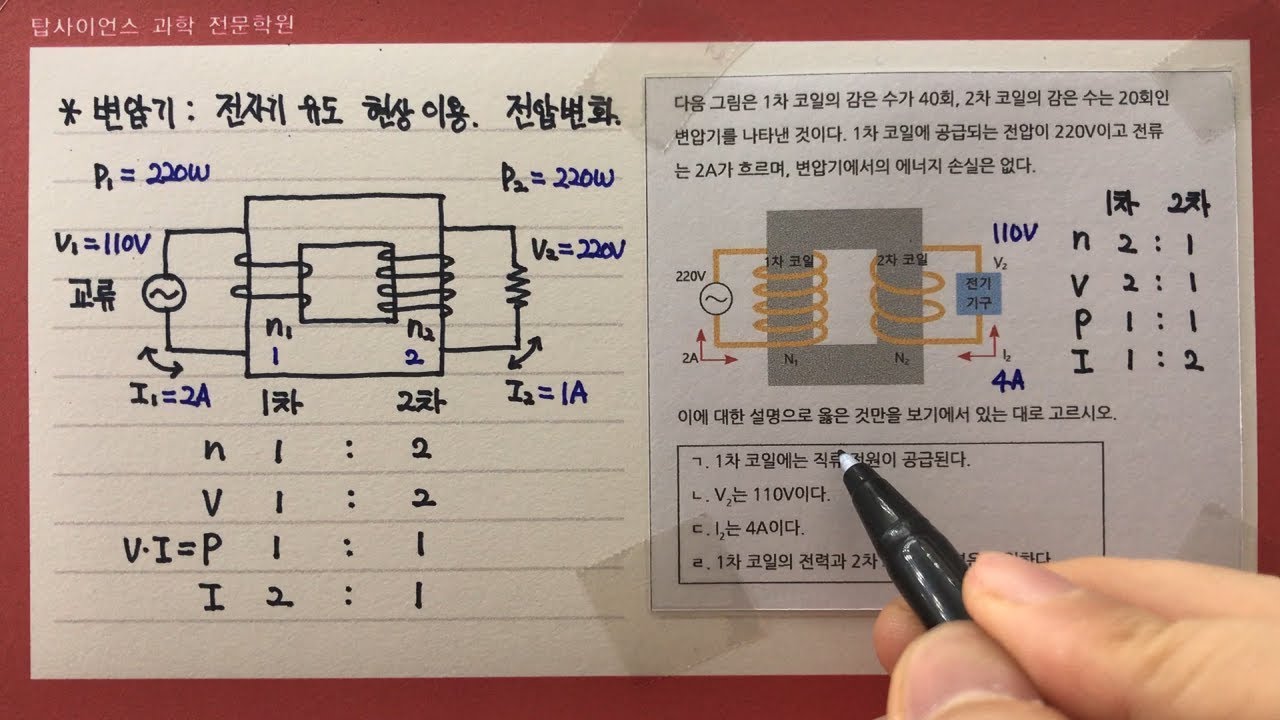 탑사이언스 과학 전문학원
* 변압기 : 전자기 유도 현상 이용. 전압변화.
P₁ = 220W
P₂ = 220W
V₁ = 110V
V₂ = 220V
교류
n₁
n₂
1
2
I₁ = 2A
I₂ = 1A
1차 2차
n 1 : 2
V 1 : 2
V·I = P 1 : 1
I 2 : 1
다음 그림은 1차 코일의 감은 수가 40회, 2차 코일의 감은 수는 20회인
변압기를 나타낸 것이다. 1차 코일에 공급되는 전압이 220V이고 전류
는 2A가 흐르며, 변압기에서의 에너지 손실은 없다.
1차 코일
2차 코일
110V
V₂
220V
전기
기구
2A
N₁
N₂
I₂
4A
1차 2차
n 2 : 1
V 2 : 1
P 1 : 1
I 1 : 2
이에 대한 설명으로 옳은 것만을 보기에서 있는 대로 고르시오.
ㄱ. 1차 코일에는 직류 전원이 공급된다.
ㄴ. V₂는 110V이다.
ㄷ. I₂는 4A이다.
ㄹ. 1차 코일의 전력과 2차